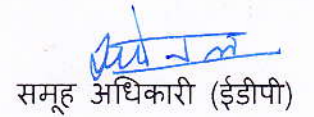 समूह अधिकारी (ईडीपी)